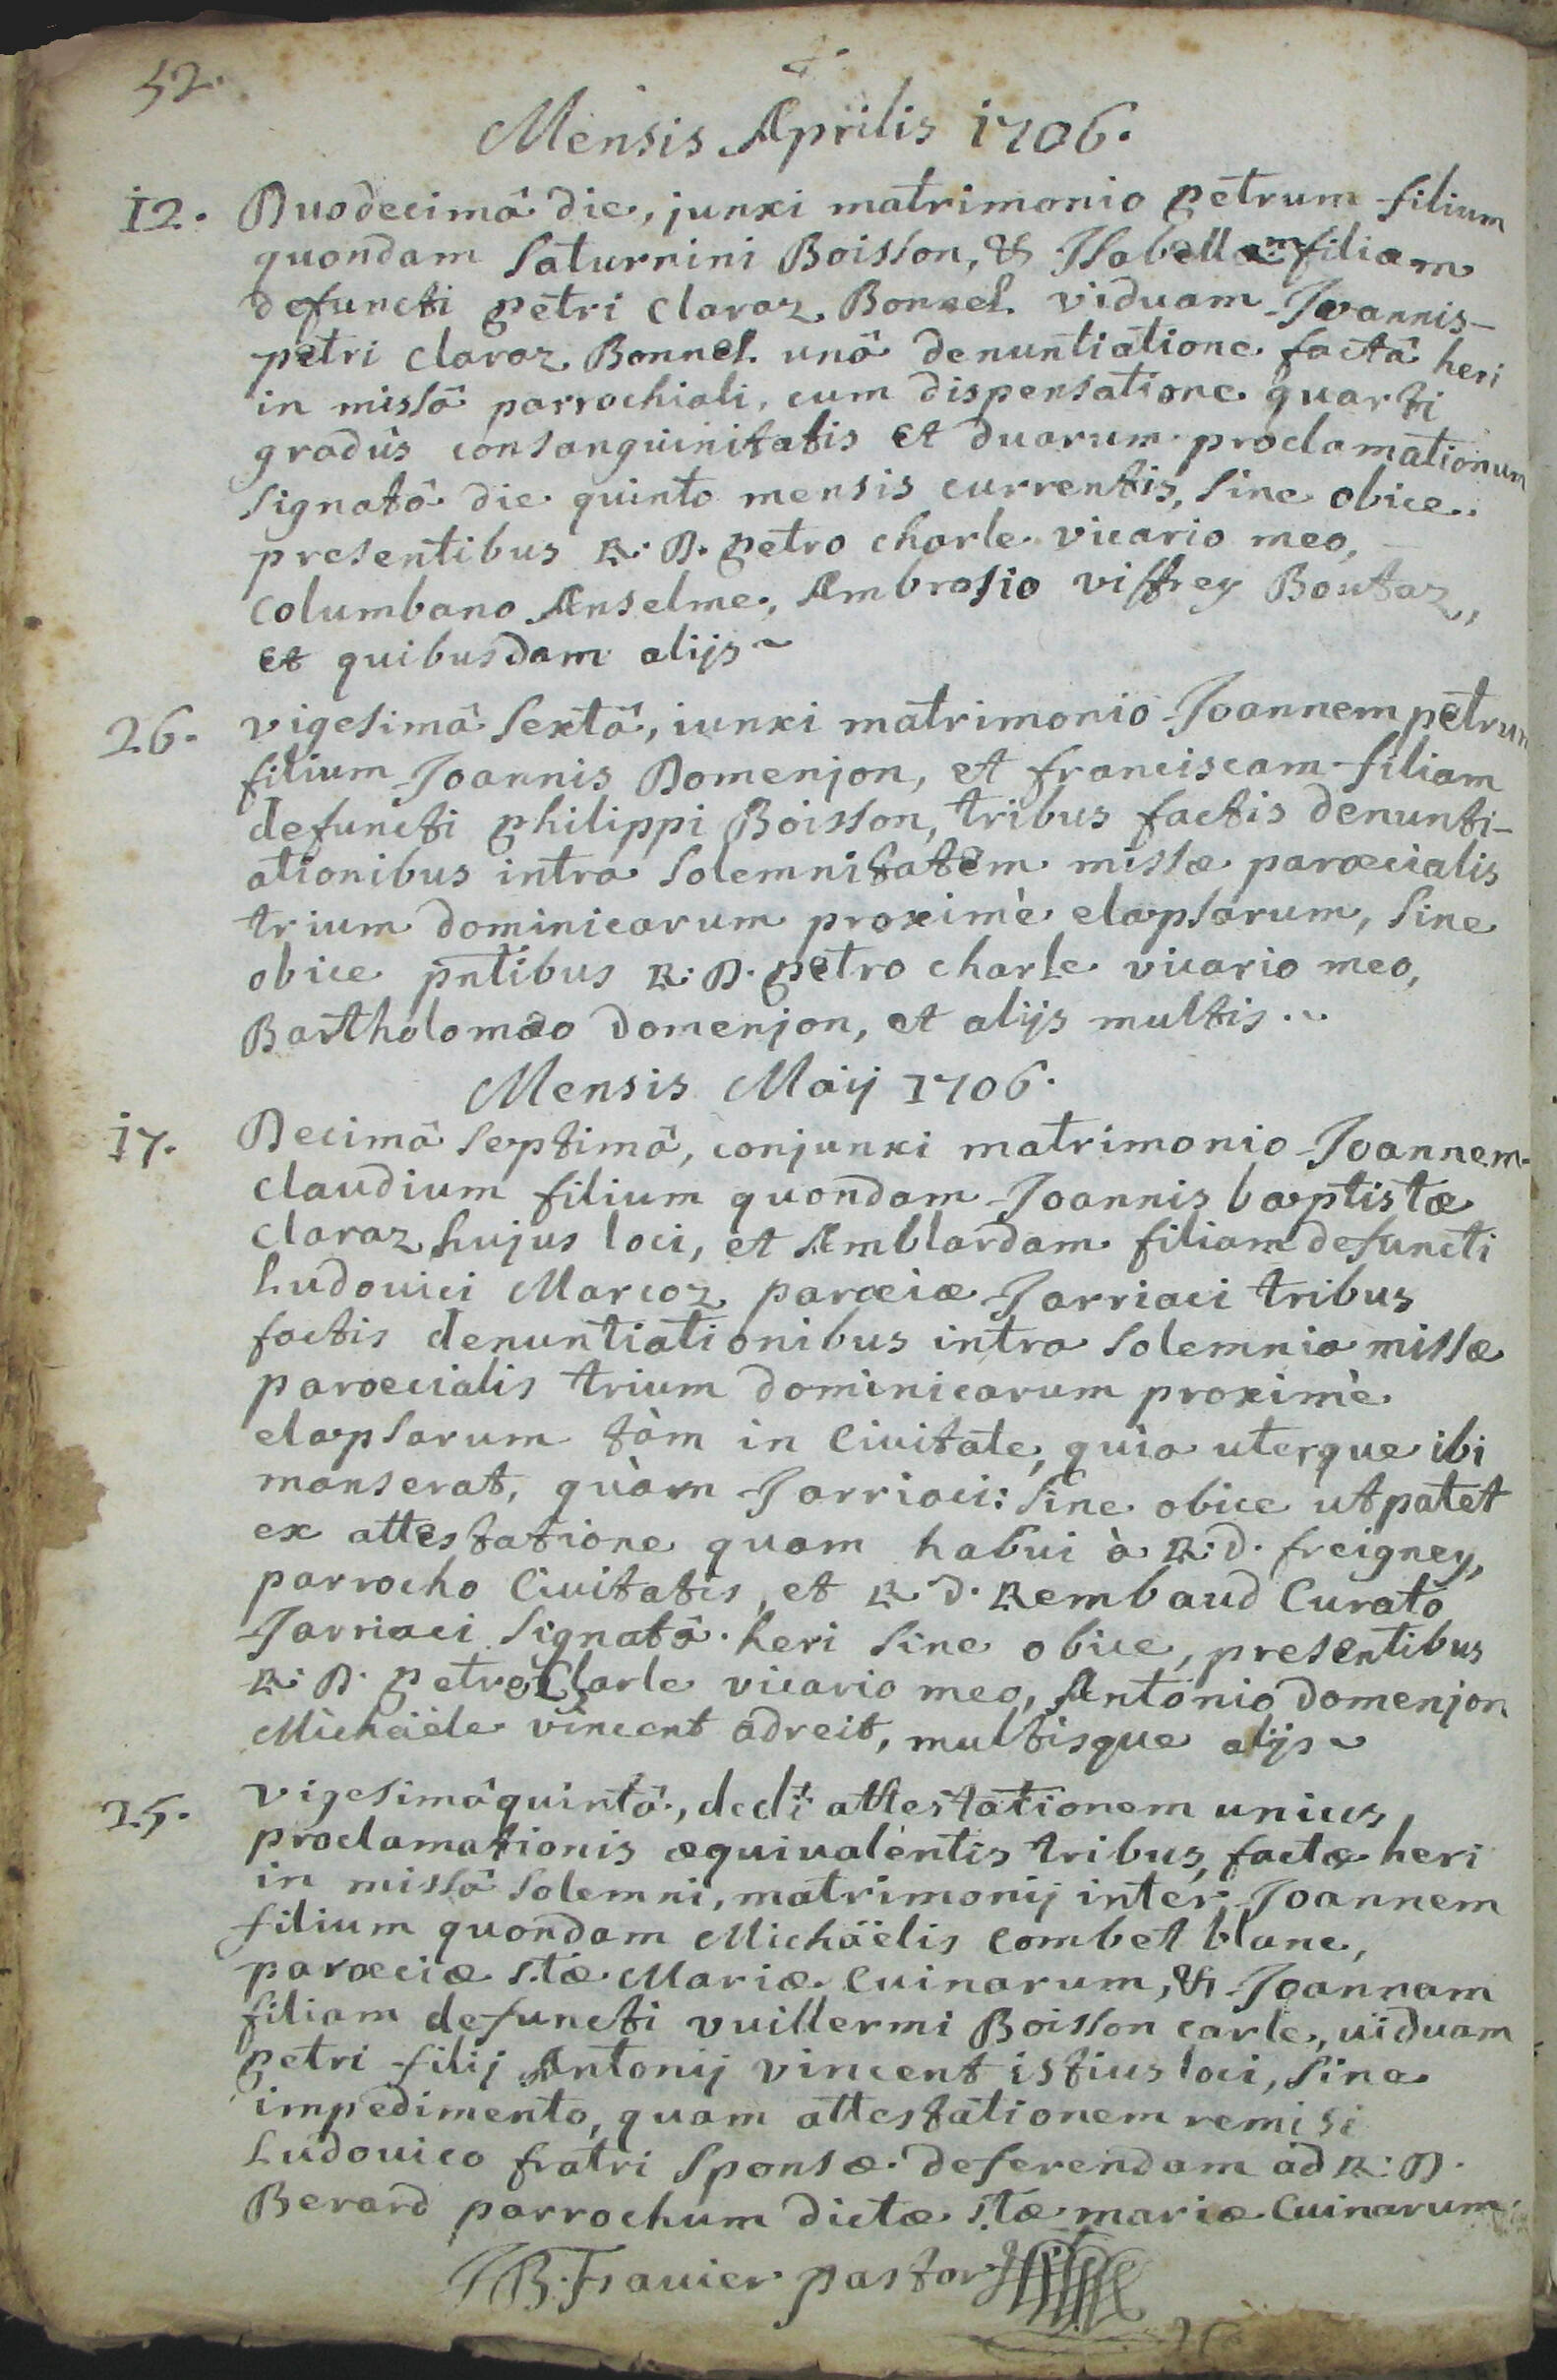 52.
Mensis Aprilis 1706.
12. Duodecimâ die, junxi matrimonio petrum filium
quondam Saturnini Boisson, & Isabellam filiam
defuncti petri claraz Bonnel viduam Joannis-
petri claraz Bonnel. unâ denuntiatione factâ heri
in missâ parrochiali, cum dispensatione quarti
gradûs consanguinitatis et duarum proclamationum
signatâ die quinto mensis currentis, sine obice.
presentibus R. D. petro charle vicario meo,
columbano Anselme, Ambrosio viffrey Boutaz,
et quibusdam alijs~
26. vigesimâ sextâ, iunxi matrimonio Joannem petrum
filium Joannis Domenjon, et franciscam filiam
defuncti philippi Boisson, tribus factis denunti-
ationibus intra solemnitatem missæ paroecialis
trium dominicarum proximè elapsarum, sine
obice pntibus R: D. petro charle vicario meo,
Bartholomæo domenjon, et alijs multis...
Mensis Maij 1706.
17. Decimâ septimâ, conjunxi matrimonio Joannem-
claudium filium quondam Joannis baptistæ
claraz hujus loci, et Amblardam filiam defuncti
Ludouici Marcoz paroeciæ Jarriaci tribus
factis denuntiationibus intra solemnia missæ
paroecialis trium dominicarum proximè
elapsarum tàm in Ciuitate, quia uterque ibi
manserat, quàm Jarriaci: sine obice ut patet
ex attestatione quam habui à R. d. freigney,
parrocho Ciuitatis, et R. d. Rembaud Curato
Jarriaci signatâ heri sine obice, presentibus
R. D. petro Charle vicario meo, Antonio domenjon
Michäele vincent adreit, multisque alijs~
25. vigesimâ quintâ, dedi attestationem unius
proclamationis æquiualentis tribus, factæ heri
in missâ solemni, matrimonij inter Joannem
filium quondam Michäelis combet blanc,
paroeciæ s.tæ Mariæ Cuinarum, & Joannam
filiam defuncti vuillermi Boisson carle, uiduam
petri filij Antonij vincent istius loci, sine
impedimento, quam attestationem remisi
Ludouico fratri sponsæ deferendam ad R: D.
Berard parrochum dictæ s.tæ mariæ Cuinarum.
pastor